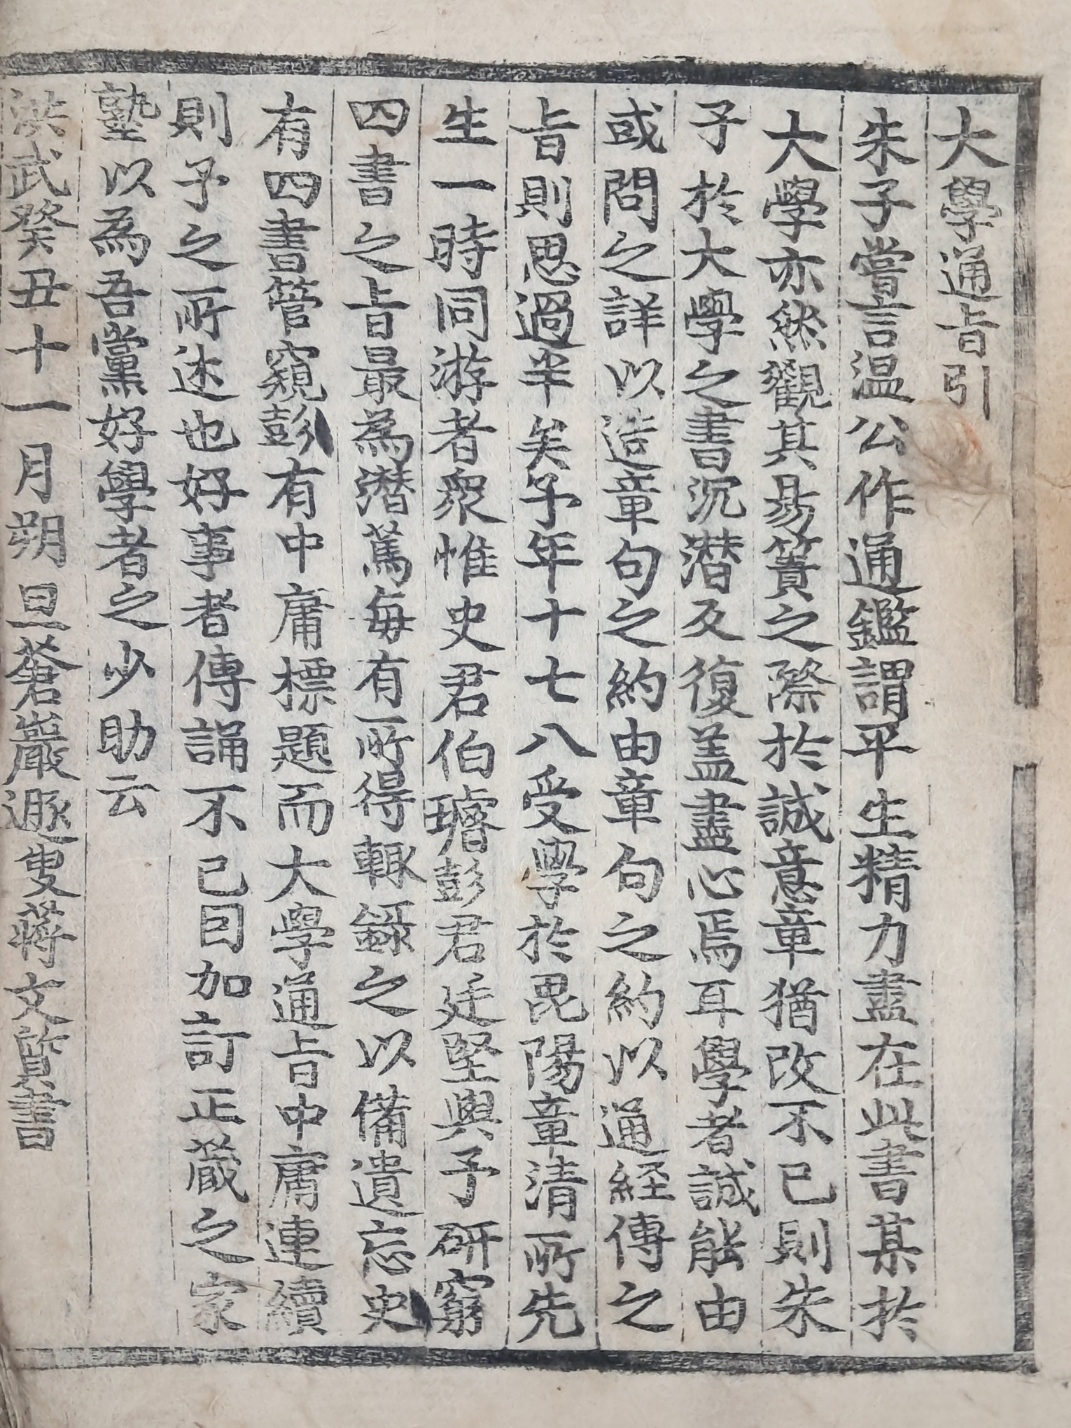 大學通旨引
朱子嘗言温公作通鑑謂平生精力盡在此書某於
大學亦然觀其易簀之際於誠意章猶改不已則朱
子於大學之書沉潜反復盖盡心焉耳學者誠能由
或問之詳以造章句之約由章句之約以通経傳之
旨則思過半矣予年十七八受學於毘陽童清所先
生一時同游者衆惟史君伯璿彭君廷堅與予研窮
四書之旨最為潜篤每有所得輙録之以備遺忘史
有四書管窺彭有中庸標題而大學通旨中庸連續
則予之所述也好事者傳誦不已因加訂正蔵之家
塾以為吾黨好學者之少助云
洪武癸丑十一月朔旦蒼巖遯叟蒋文質書